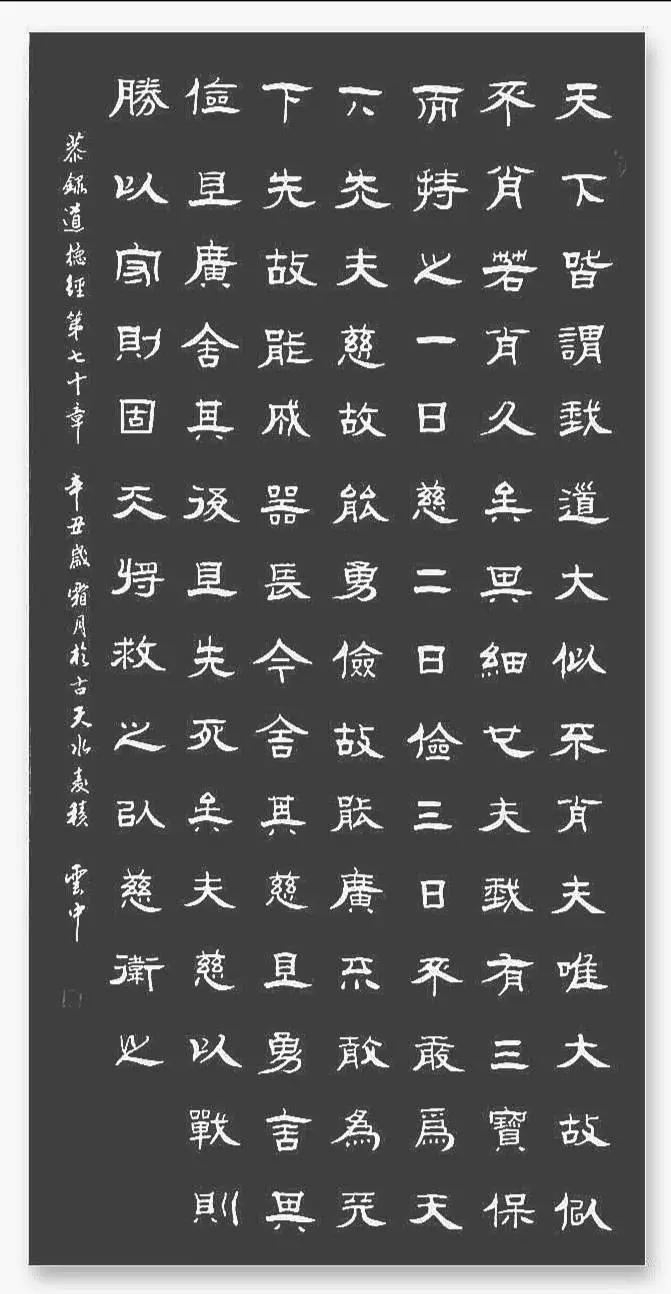 天下皆謂我道大似不肖夫唯大故似
不肖若肖久矣其細也夫我有三寶保
而持之一曰慈二曰儉三曰不敢爲天
下先夫慈故能勇儉故能廣不敢為天
下先故能成器長今舍其慈且勇舍其
儉且廣舍其後且先死矣夫慈以戰則
勝以守則固天將救之以慈衛之
恭錄道德經第七十章 辛丑歲霜月於古天水麥積 雲中